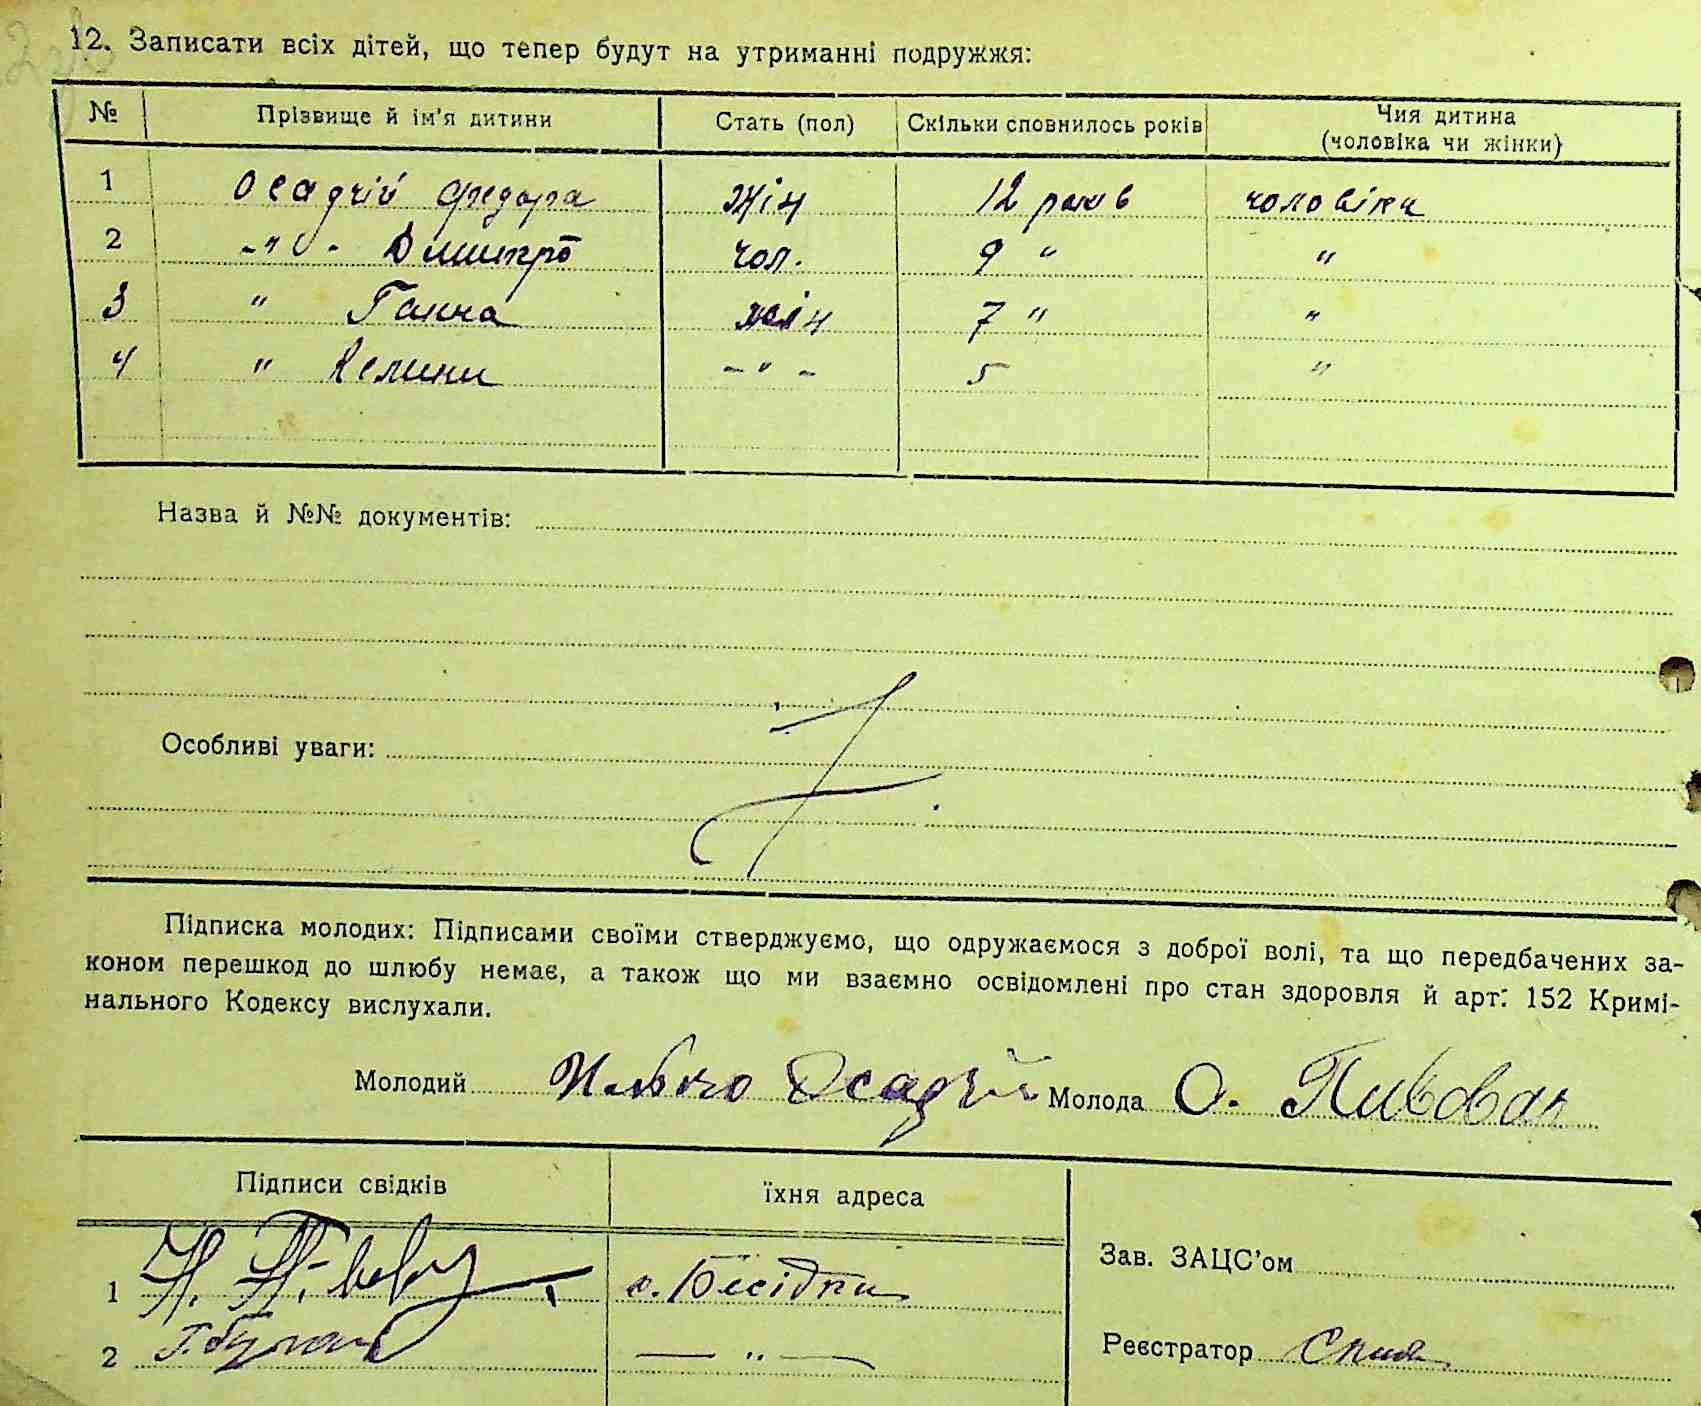 12. Записати всіх дітей, що тепер будут на утриманні подружжя:
№ Прізвище й ім'я дитини Стать (пол) Скільки сповнилось років Чия дитина (чоловіка чи жінки)
1 Осадчій Федора жін 12 років чоловіка
2 -"- Дмитро чол. 9 " "
3 " Ганна жін 7 " "
4 " Келини -"- 5 "
Назва й №№ документів:
Особливі уваги:
Підписка молодих: Підписами своїми стверджуємо, що одружаємося з доброї волі, та що передбачених за-
коном перешкод до шлюбу немає, а також що ми взаємно освідомлені про стан здоровля й арт. 152 Кримі-
нального Кодексу вислухали.
Молодий Илько Осадчій Молода О. Пивовар
Підписи свідків їхня адреса
Зав. ЗАЦС'ом
1 с. Бесідки
2 — " —
Реєстратор